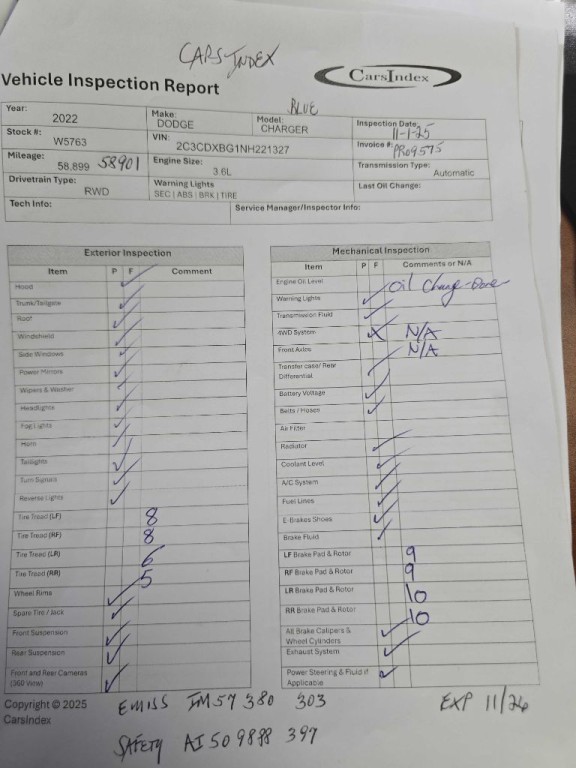 CARS-INDEX
CarsIndex
Vehicle Inspection Report
BLUE
Year: 2022
Make: DODGE
Model: CHARGER
Inspection Date: 11-1-25
Stock #: W5763
VIN: 2C3CDXBG1NH221327
Invoice #: PRO9575
Mileage: 58,899 58901
Engine Size: 3.6L
Transmission Type: Automatic
Drivetrain Type: RWD
Warning Lights
SEC | ABS | BRK | TIRE
Last Oil Change:
Tech Info:
Service Manager/Inspector Info:
Exterior Inspection
Item P F Comment
Hood
Trunk/Tailgate
Roof
Windshield
Side Windows
Power Mirrors
Wipers & Washer
Headlights
Fog Lights
Horn
Taillights
Turn Signals
Reverse Lights
Tire Tread (LF) 8
Tire Tread (RF) 8
Tire Tread (LR) 6
Tire Tread (RR) 5
Wheel Rims
Spare Tire / Jack
Front Suspension
Rear Suspension
Front and Rear Cameras
(360 View)
Mechanical Inspection
Item P F Comments or N/A
Engine Oil Level Oil Change-Done
Warning Lights
Transmission Fluid
4WD System N/A
Front Axles N/A
Transfer case/ Rear
Differential
Battery Voltage
Belts / Hoses
Air Filter
Radiator
Coolant Level
A/C System
Fuel Lines
E-Brakes Shoes
Brake Fluid
LF Brake Pad & Rotor 9
RF Brake Pad & Rotor 9
LR Brake Pad & Rotor 10
RR Brake Pad & Rotor 10
All Brake Calipers &
Wheel Cylinders
Exhaust System
Power Steering & Fluid if
Applicable
Copyright © 2025
CarsIndex
EMISS IM57 380 303 EXP 11/26
SAFETY AI50 9888 397